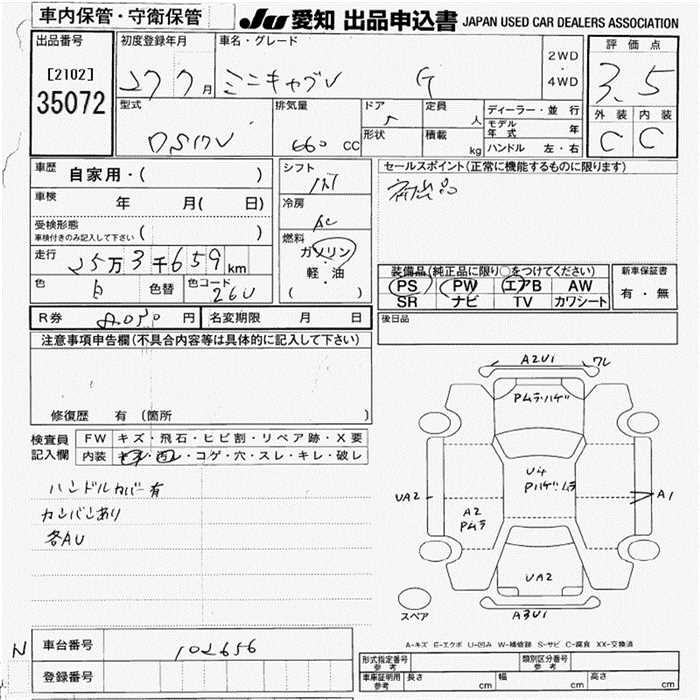 車内保管・守衛保管
JU 愛知 出品申込書 JAPAN USED CAR DEALERS ASSOCIATION
出品番号
[2102]
35072
初度登録年月
27 7 月
車名・グレード
ミニキャブV G
2WD
・
4WD
評価点
3.5
外装 内装
C C
型式
DS17V
排気量
660 cc
ドア
5
形状
定員
人
積載
kg
ディーラー・並行
モデル年式 年
ハンドル 左・右
車歴
自家用・( )
車検
年 月( 日)
受検形態
車検付きのみ記入して下さい ( )
走行
25万3千659 km
色
白
色替
色コード
26U
シフト
冷房
AC
燃料
ガソリン
・
軽・油
( )
セールスポイント(正常に機能するものに限ります)
初出品
装備品(純正品に限り○をつけてください)
PS PW エアB AW
SR ナビ TV カワシート
新車保証書
有・無
R券 8.050 円
名変期限 月 日
後日品
注意事項申告欄(不具合内容等は具体的に記入して下さい)
修復歴 有(箇所 )
検査員記入欄
FW キズ・飛石・ヒビ割・リペア跡・X要
内装 キズ・汚レ・コゲ・穴・スレ・キレ・破レ
ハンドルカバー有
カンバンあり
各AU
A2U1
ワレ
Pムラ・ハゲ
U4
Pハゲ・ムラ
UA2
A1
A2
Pムラ
UA2
A3U1
スペア
A-キズ E-エクボ U-凹み W-補修跡 S-サビ C-腐食 XX-交換済
N
車台番号
102656
登録番号
形式指定番号
参考
類別区分番号
参考
車庫証明用
参考
長さ cm
幅 cm
高さ cm